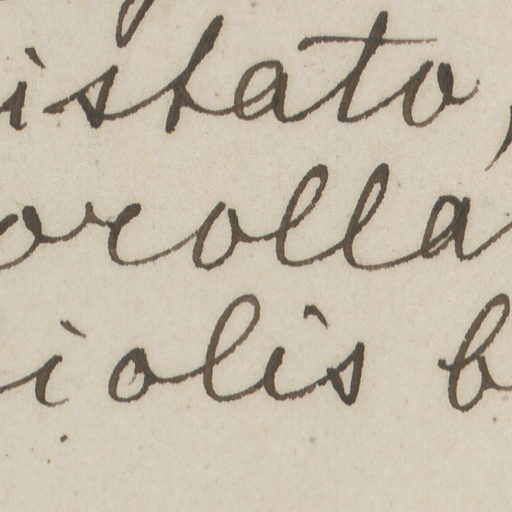 istato,
orolla
iolis b